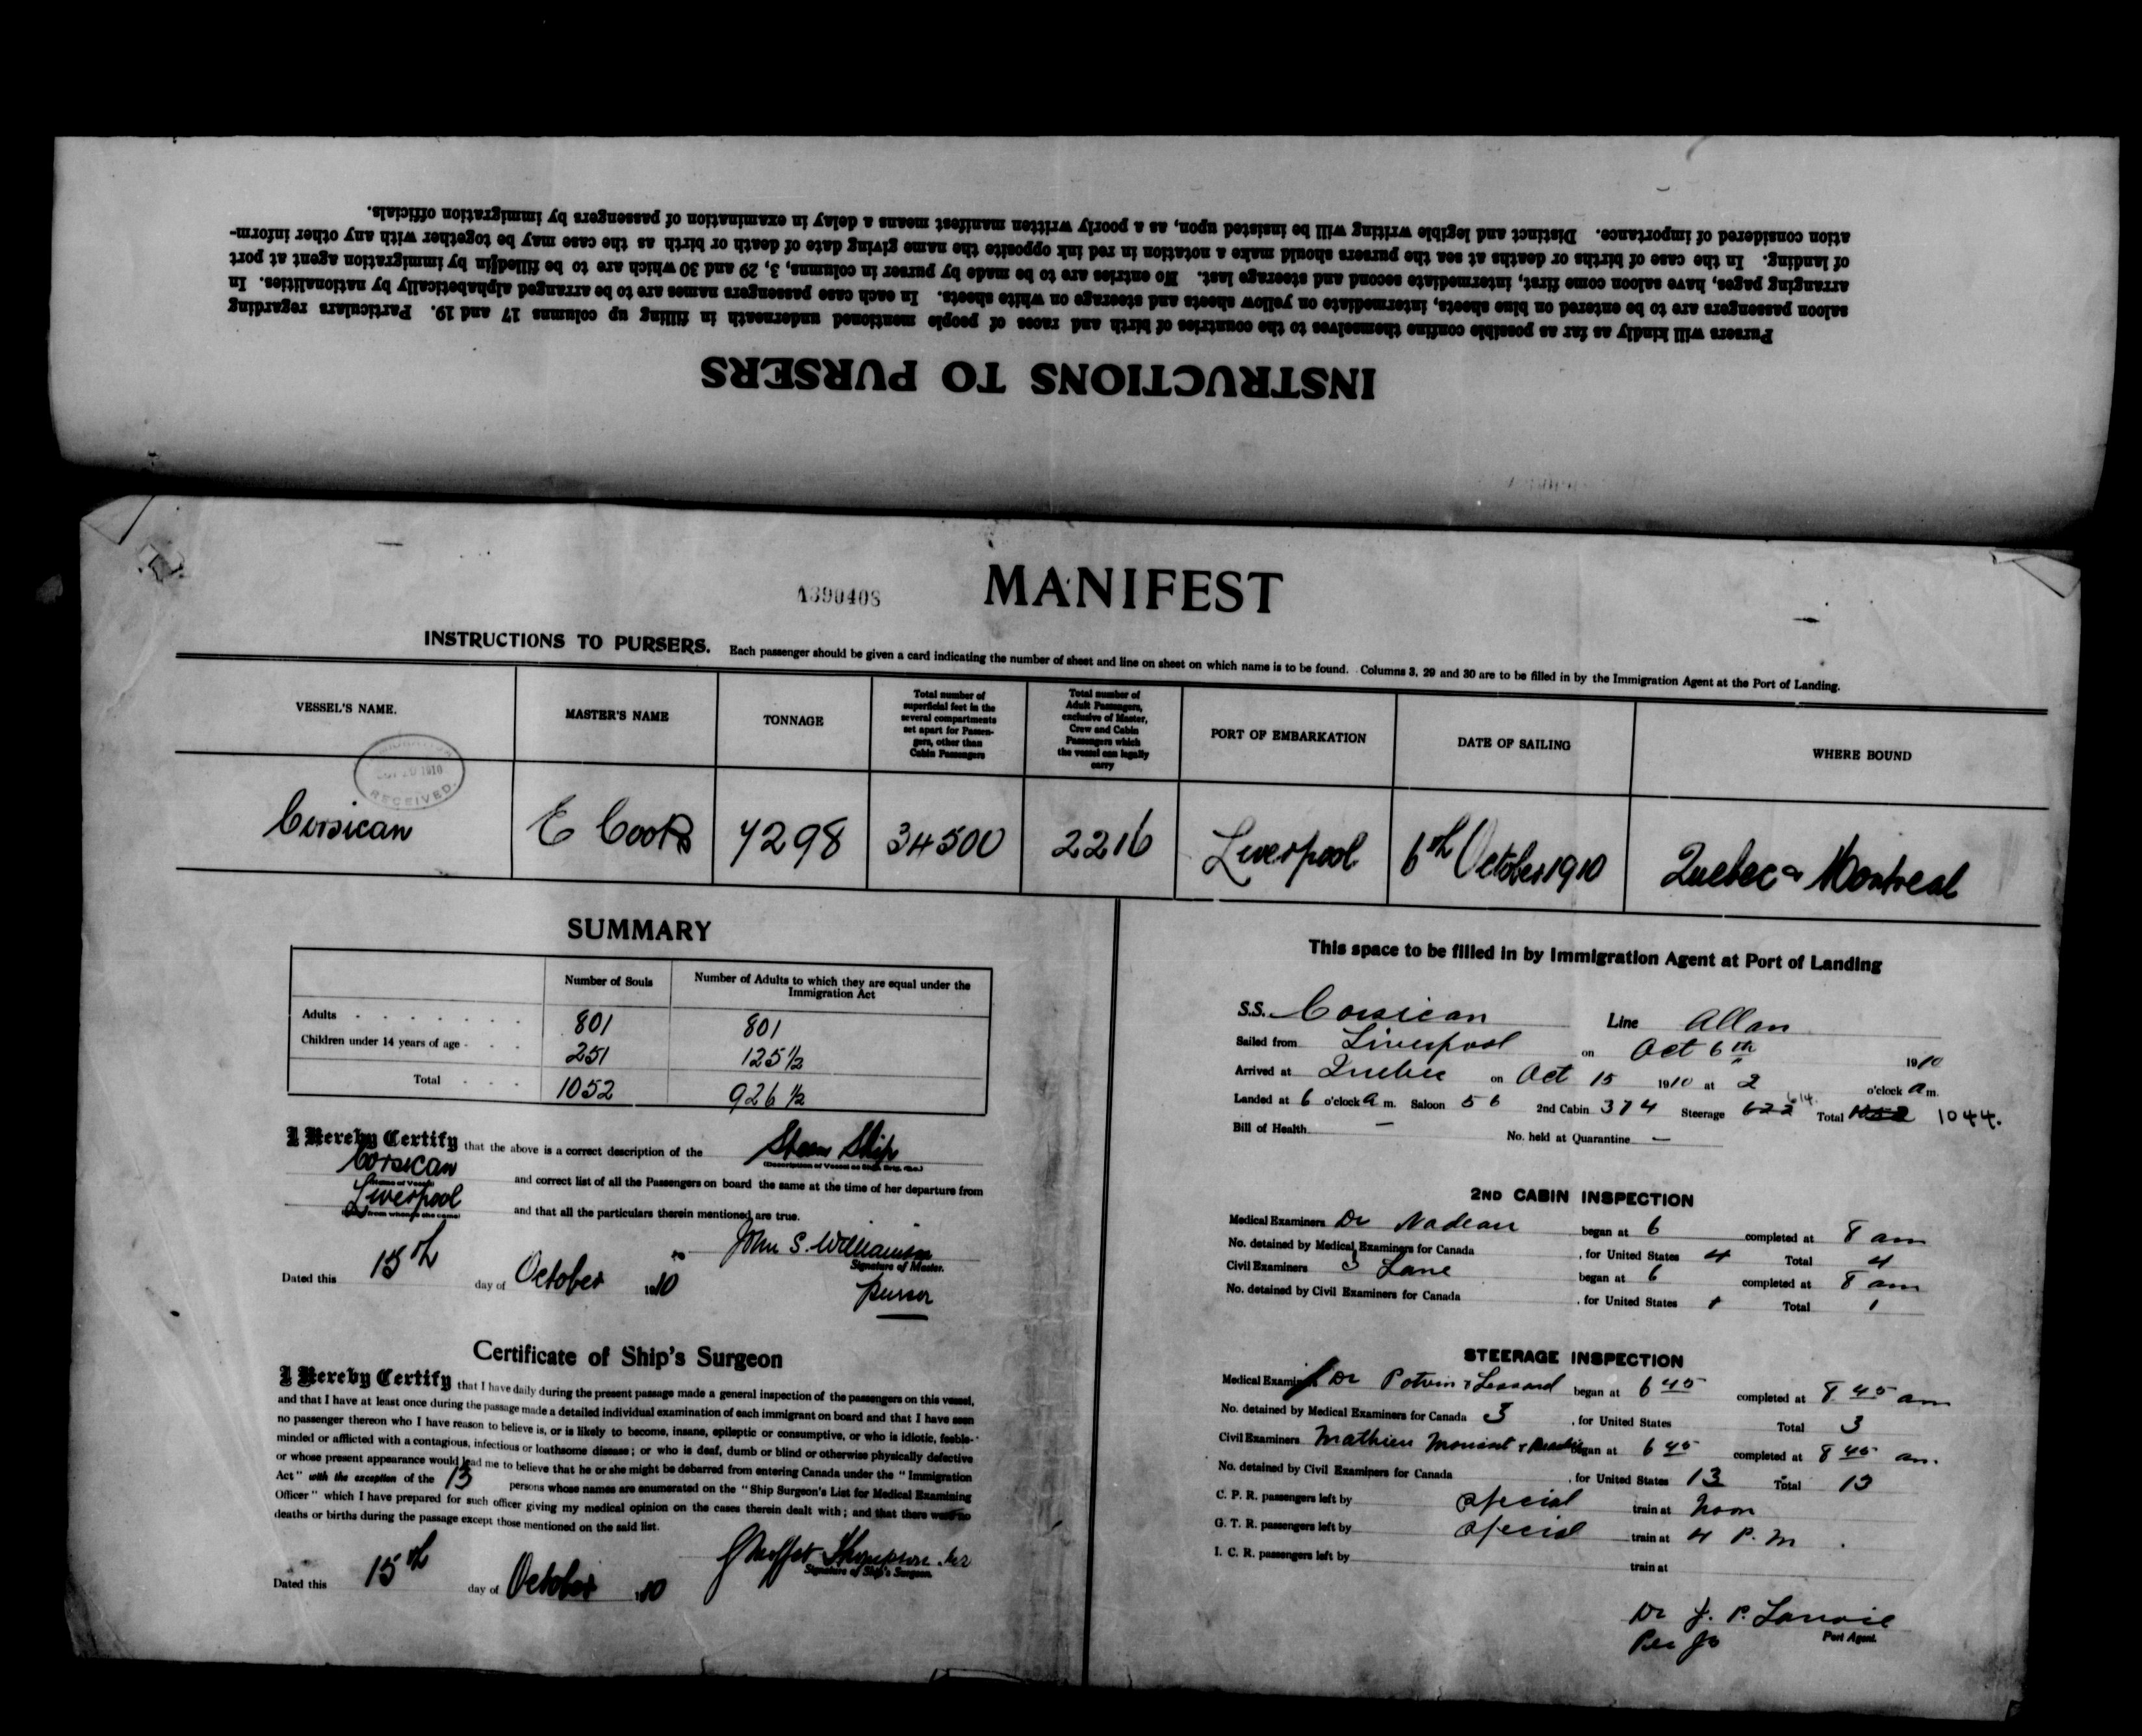 INSTRUCTIONS TO PURSERS
Pursers will kindly as far as possible confine themselves to the countries of birth and races of people mentioned underneath in filling up columns 17 and 19. Particulars regarding
saloon passengers are to be entered on blue sheets, intermediate on yellow sheets and steerage on white sheets. In each case passengers names are to be arranged alphabetically by nationalities. In
arranging pages, have saloon come first, intermediate second and steerage last. No entries are to be made by purser in columns, 3, 29 and 30 which are to be filled in by immigration agent at port
of landing. In the case of births or deaths at sea the pursers should make a notation in red ink opposite the name giving date of death or birth as the case may be together with any other inform-
ation considered of importance. Distinct and legible writing will be insisted upon, as a poorly written manifest means a delay in examination of passengers by immigration officials.
A390408
MANIFEST
INSTRUCTIONS TO PURSERS. Each passenger should be given a card indicating the number of sheet and line on sheet on which name is to be found. Columns 3, 29 and 30 are to be filled in by the Immigration Agent at the Port of Landing.
VESSEL'S NAME.
MASTER'S NAME
TONNAGE
Total number of
superficial feet in the
several compartments
set apart for Passen-
gers, other than
Cabin Passengers
Total number of
Adult Passengers,
exclusive of Master,
Crew and Cabin
Passengers which
the vessel can legally
carry
PORT OF EMBARKATION
DATE OF SAILING
WHERE BOUND
1910
RECEIVED.
Corsican
E Cook
7298
34500
2216
Liverpool
6th October 1910
Quebec & Montreal
SUMMARY
Number of Souls
Number of Adults to which they are equal under the
Immigration Act
Adults 801 801
Children under 14 years of age 251 125½
Total 1052 926½
I Hereby Certify that the above is a correct description of the Steam Ship
(Description of Vessel as Ship, Brig, &c.)
Corsican and correct list of all the Passengers on board the same at the time of her departure from
Name of Vessel
Liverpool and that all the particulars therein mentioned are true.
from whence she came
John S. Williamson
Signature of Master.
Dated this 15th day of October 1910
Purser
Certificate of Ship's Surgeon
I Hereby Certify that I have daily during the present passage made a general inspection of the passengers on this vessel,
and that I have at least once during the passage made a detailed individual examination of each immigrant on board and that I have seen
no passenger thereon who I have reason to believe is, or is likely to become, insane, epileptic or consumptive, or who is idiotic, feeble-
minded or afflicted with a contagious, infectious or loathsome disease; or who is deaf, dumb or blind or otherwise physically defective
or whose present appearance would lead me to believe that he or she might be debarred from entering Canada under the "Immigration
Act" with the exception of the 13 persons whose names are enumerated on the "Ship Surgeon's List for Medical Examining
Officer" which I have prepared for such officer giving my medical opinion on the cases therein dealt with; and that there were no
deaths or births during the passage except those mentioned on the said list.
Moffat Thompson
Signature of Ship's Surgeon.
Dated this 15th day of October 1910
This space to be filled in by Immigration Agent at Port of Landing
S.S. Corsican Line Allan
Sailed from Liverpool on Oct 6th 1910
Arrived at Quebec on Oct 15 1910 at 2 o'clock a m.
Landed at 6 o'clock a m. Saloon 56 2nd Cabin 374 Steerage 622 614. Total 1052 1044.
Bill of Health — No. held at Quarantine —
2ND CABIN INSPECTION
Medical Examiners Dr Nadeau began at 6 completed at 8 am
No. detained by Medical Examiners for Canada , for United States 4 Total 4
Civil Examiners Lane began at 6 completed at 8 am
No. detained by Civil Examiners for Canada , for United States 1 Total 1
STEERAGE INSPECTION
Medical Examiners Dr Potvin & Lessard began at 6 45 completed at 8 45 am
No. detained by Medical Examiners for Canada 3 , for United States Total 3
Civil Examiners Mathieu began at 6 45 completed at 8 45 am.
No. detained by Civil Examiners for Canada , for United States 13 Total 13
C. P. R. passengers left by special train at Noon
G. T. R. passengers left by special train at 4 P.m.
I. C. R. passengers left by train at
Dr J. P. Lavoie
Port Agent.
Per